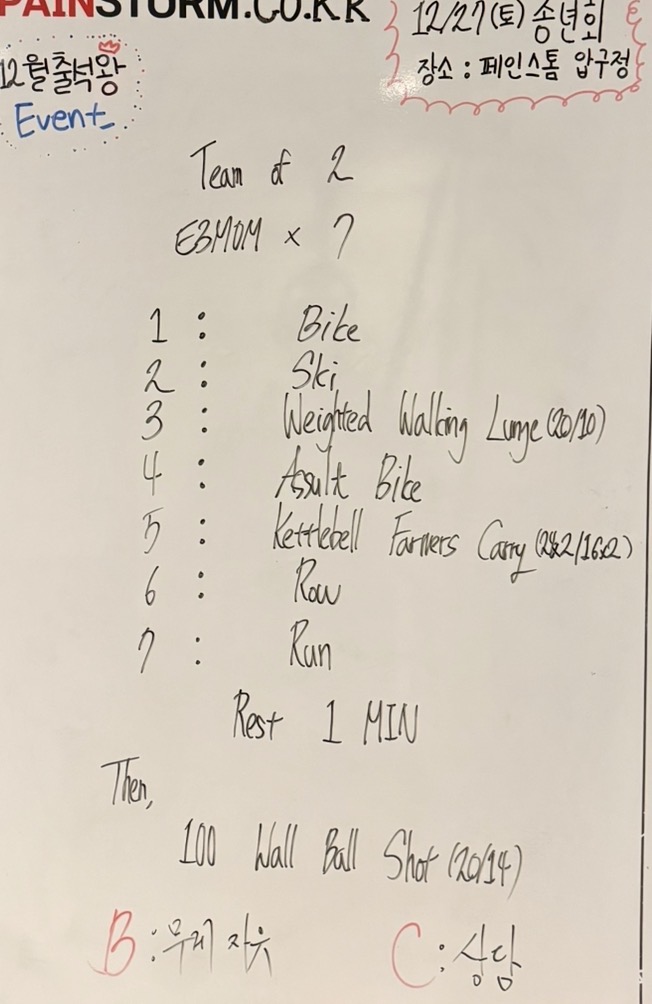 PAINSTORM.CO.KR
12월출석왕
Event
12/27(토) 송년회
장소 : 페인스톰 압구정
Team of 2
E3MOM x 7
1 : Bike
2 : Ski
3 : Weighted Walking Lunge (20/10)
4 : Assult Bike
5 : Kettlebell Farmers Carry (24x2/16x2)
6 : Row
7 : Run
Rest 1 MIN
Then,
100 Wall Ball Shot (20/14)
B : 무게 자유
C : 상담